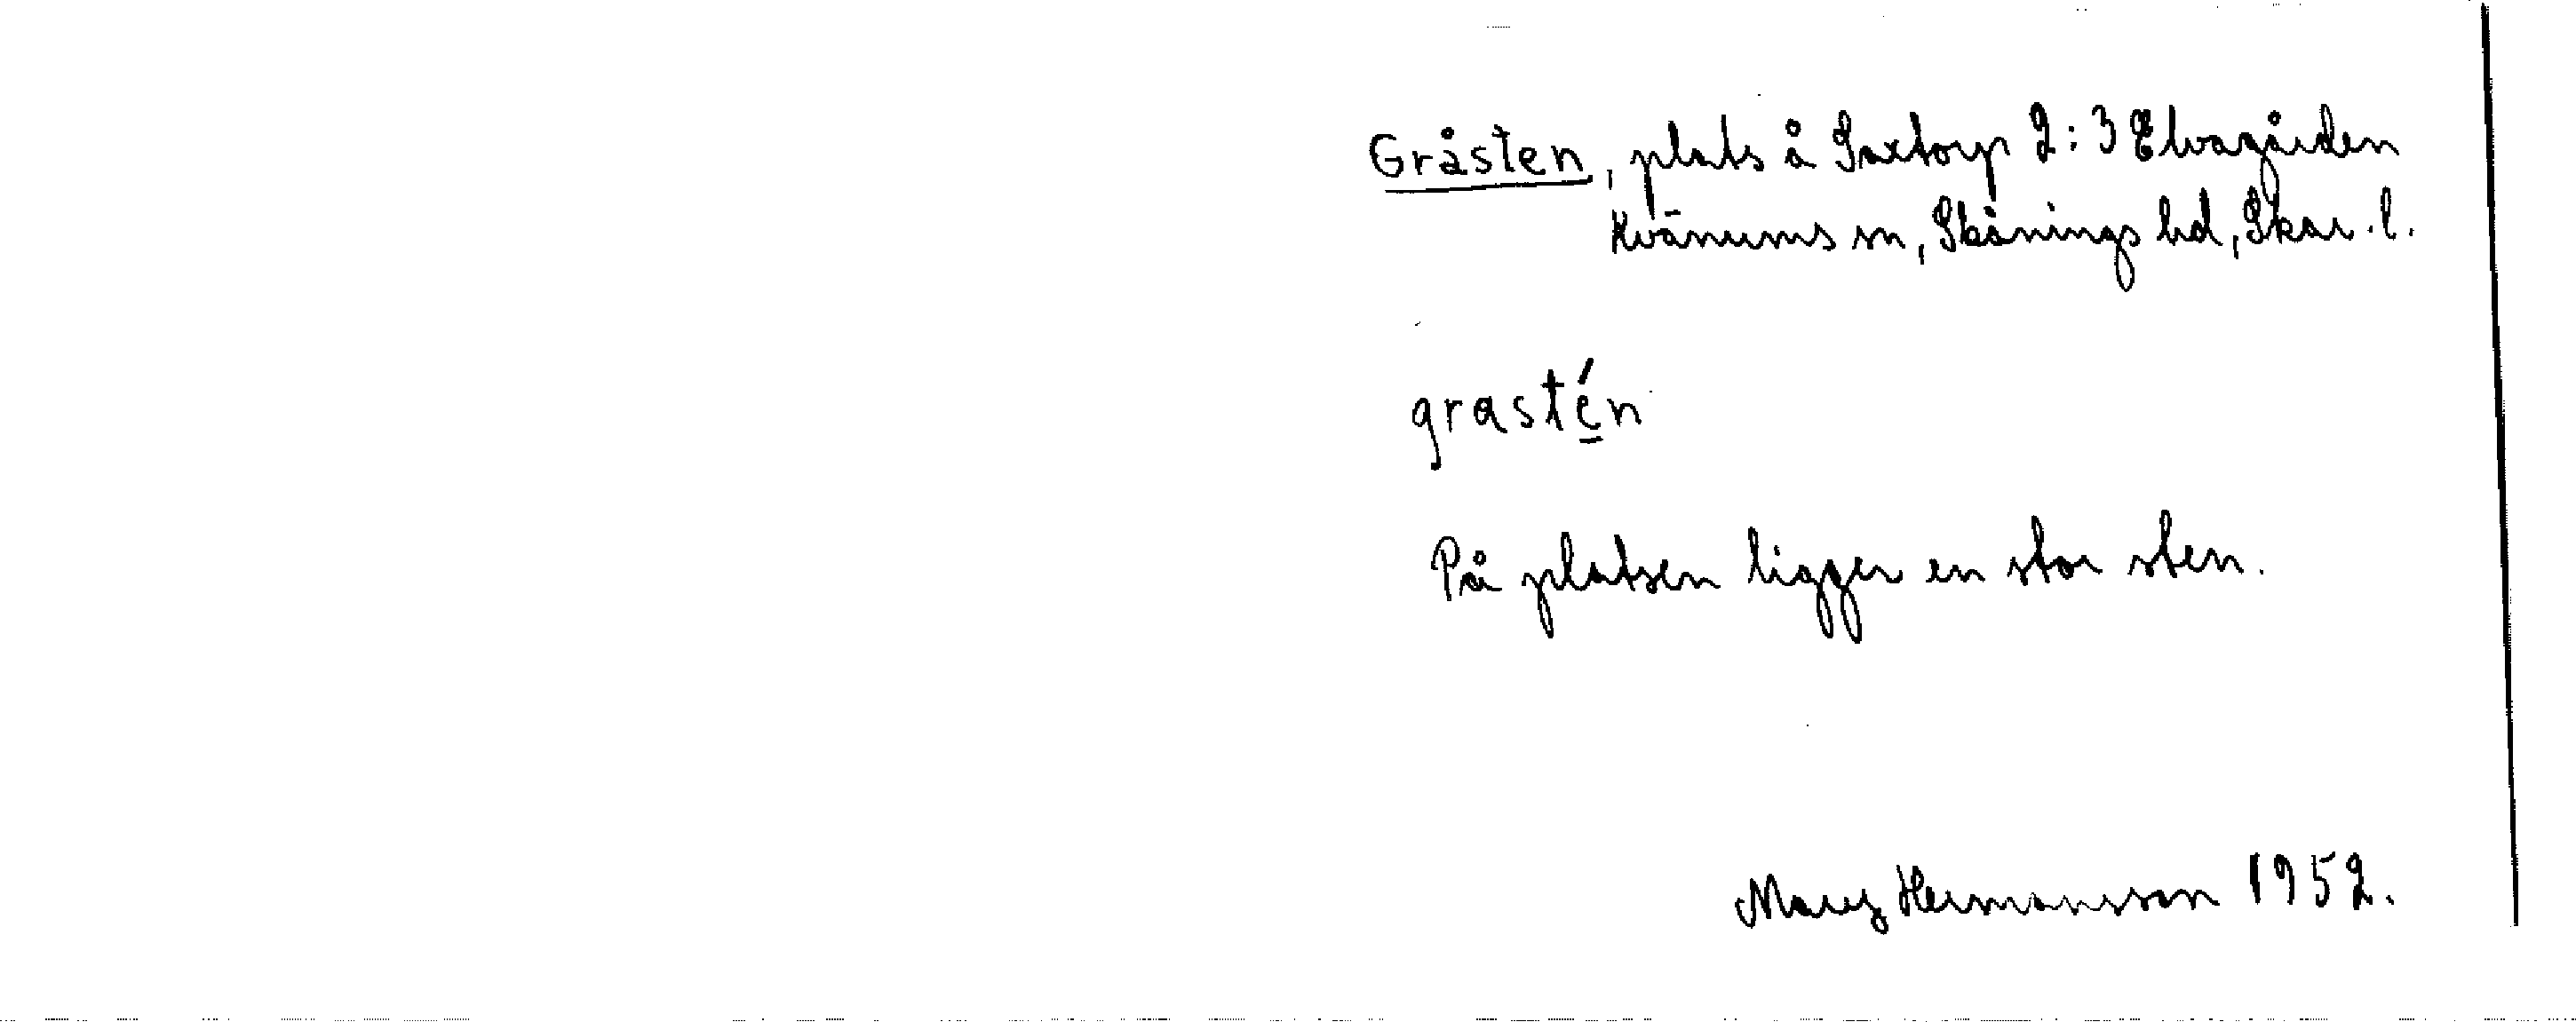 Gråsten, plats å Saxtorp 2:3 Elvagården
Kvänums sn, Skånings hd, Skar. l.
grastén
På platsen ligger en stor sten.
Mary Hermansson 1952.